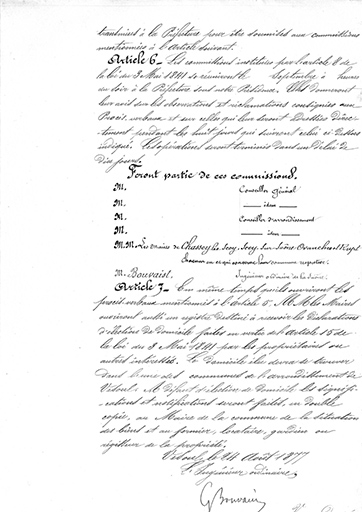 transmises à la Préfecture pour être soumises aux commissions
mentionnées à l'Article suivant.
Article 6 - Les commissions instituées par l'article 8 de
la loi du 3 Mai 1841 se réuniront le Septembre à heures
du soir à la Préfecture sous notre Présidence. Elles donneront
leur avis sur les observations et réclamations consignées aux
Procès verbaux et sur celles qui leur seront adressées direc-
tement pendant les huit jours qui suivront celui ci-dessus
indiqué. Les opérations seront terminées dans un délai de
dix jours.
Feront partie de ces commissions.
M. Conseiller Général
M. _ idem _
M. Conseiller d'arrondissement
M. _ idem _
M.M. Les Maires de Chassey les Scey, Scey-sur-Saône,
chacun en ce qui concerne la commune respective.
M. Bouvaist. Ingénieur ordinaire de la Saône.
Article 7 - En même temps qu'ils ouvriront les
procès verbaux mentionnés à l'article 5, M.M. les Maires
ouvriront aussi un registre destiné à recevoir les déclarations
d'élection de domicile faites en vertu de l'Article 15 de
la loi du 3 Mai 1841 par les propriétaires ou
autres intéressés. Le domicile élu devra se trouver
dans l'une des communes de l'arrondissement de
Vesoul. A défaut d'élection de domicile les signifi-
cations et notifications seront faites, en double
copie, au Maire de la commune de la situation
des biens et au fermier, locataire, gardien ou
régisseur de la propriété.
Vesoul le 24 Août 1877
L'Ingénieur ordinaire,
G Bouvaist